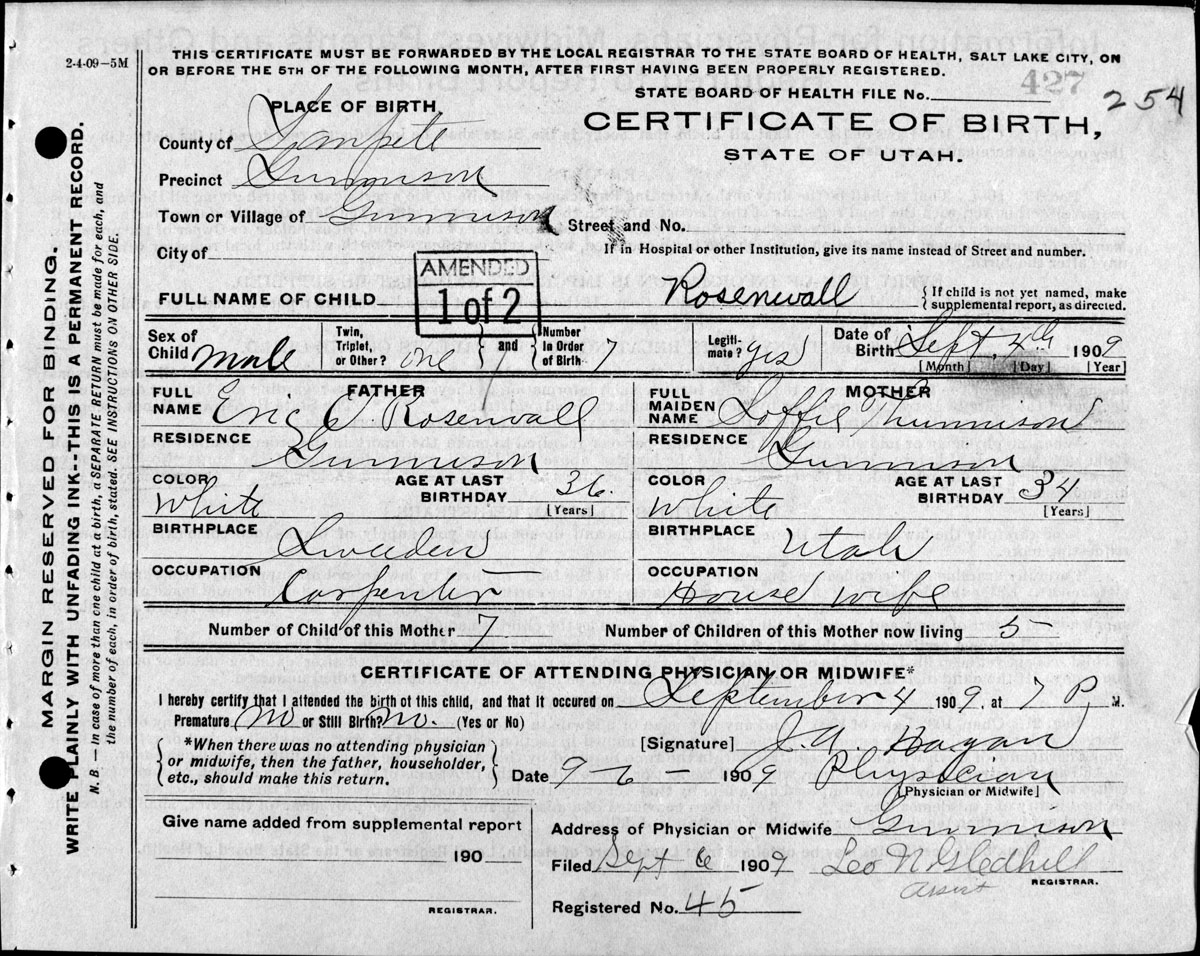 2-4-09-5M
THIS CERTIFICATE MUST BE FORWARDED BY THE LOCAL REGISTRAR TO THE STATE BOARD OF HEALTH, SALT LAKE CITY, ON
OR BEFORE THE 5TH OF THE FOLLOWING MONTH, AFTER FIRST HAVING BEEN PROPERLY REGISTERED.
427
STATE BOARD OF HEALTH FILE No. 254
CERTIFICATE OF BIRTH,
STATE OF UTAH.
PLACE OF BIRTH,
County of Sanpete
Precinct Gunnison
Town or Village of Gunnison Street and No.
City of If in Hospital or other Institution, give its name instead of Street and number.
AMENDED
1 of 2
FULL NAME OF CHILD Rosenwall { If child is not yet named, make
supplemental report, as directed.
Sex of Child male Twin, Triplet, or Other? one and Number in Order of Birth 7 Legiti-mate? yes Date of Birth Sept 4th 1909
[Month] [Day] [Year]
FATHER
FULL NAME Eric O. Rosenwall
RESIDENCE
Gunnison
COLOR White AGE AT LAST BIRTHDAY 36
[Years]
BIRTHPLACE
Sweeden
OCCUPATION
Carpenter
MOTHER
FULL MAIDEN NAME Loffie
RESIDENCE
Gunnison
COLOR White AGE AT LAST BIRTHDAY 34
[Years]
BIRTHPLACE
Utah
OCCUPATION
House wife
Number of Child of this Mother 7 Number of Children of this Mother now living 5
CERTIFICATE OF ATTENDING PHYSICIAN OR MIDWIFE*
I hereby certify that I attended the birth of this child, and that it occured on September 4 1909, at 7 P. M.
Premature No or Still Birth? no. (Yes or No)
*When there was no attending physician
or midwife, then the father, householder,
etc., should make this return.
[Signature] J. A. Hagan
Date 9-6- 1909 Physician
[Physician or Midwife]
Give name added from supplemental report
190
REGISTRAR.
Address of Physician or Midwife Gunnison
Filed Sept 6 1909 Leo N Gledhill
Assist REGISTRAR.
Registered No. 45
MARGIN RESERVED FOR BINDING.
WRITE PLAINLY WITH UNFADING INK--THIS IS A PERMANENT RECORD.
N. B. — In case of more than one child at a birth, a SEPARATE RETURN must be made for each, and
the number of each, in order of birth, stated. SEE INSTRUCTIONS ON OTHER SIDE.